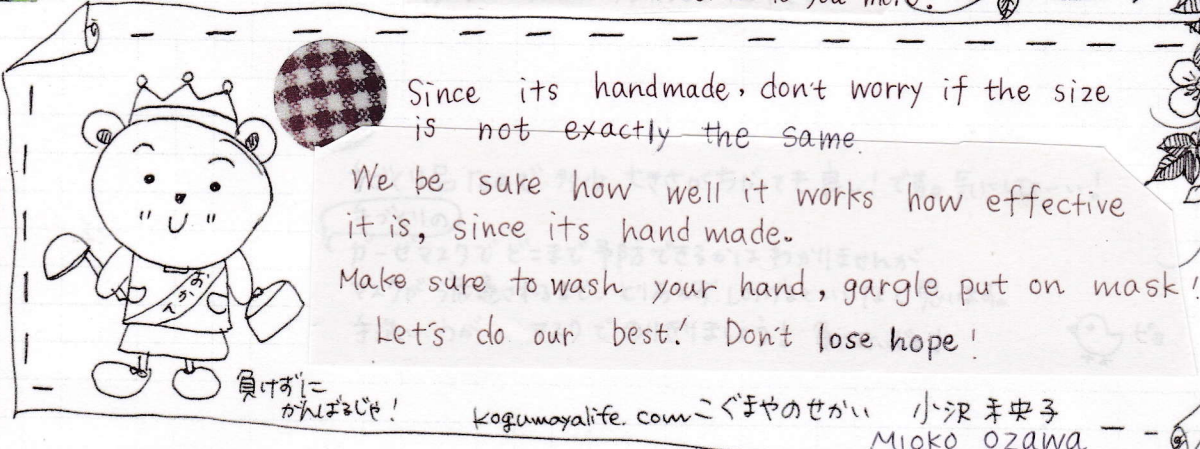 Since its handmade, don't worry if the size
is not exactly the same.
We be sure how well it works how effective
it is, since its hand made.
Make sure to wash your hand, gargle put on mask!
Let's do our best! Don't lose hope!
おかん
負けずに
がんばるじゃ!
kogumayalife.com こぐまやのせかい 小沢 未央子
Mioko Ozawa